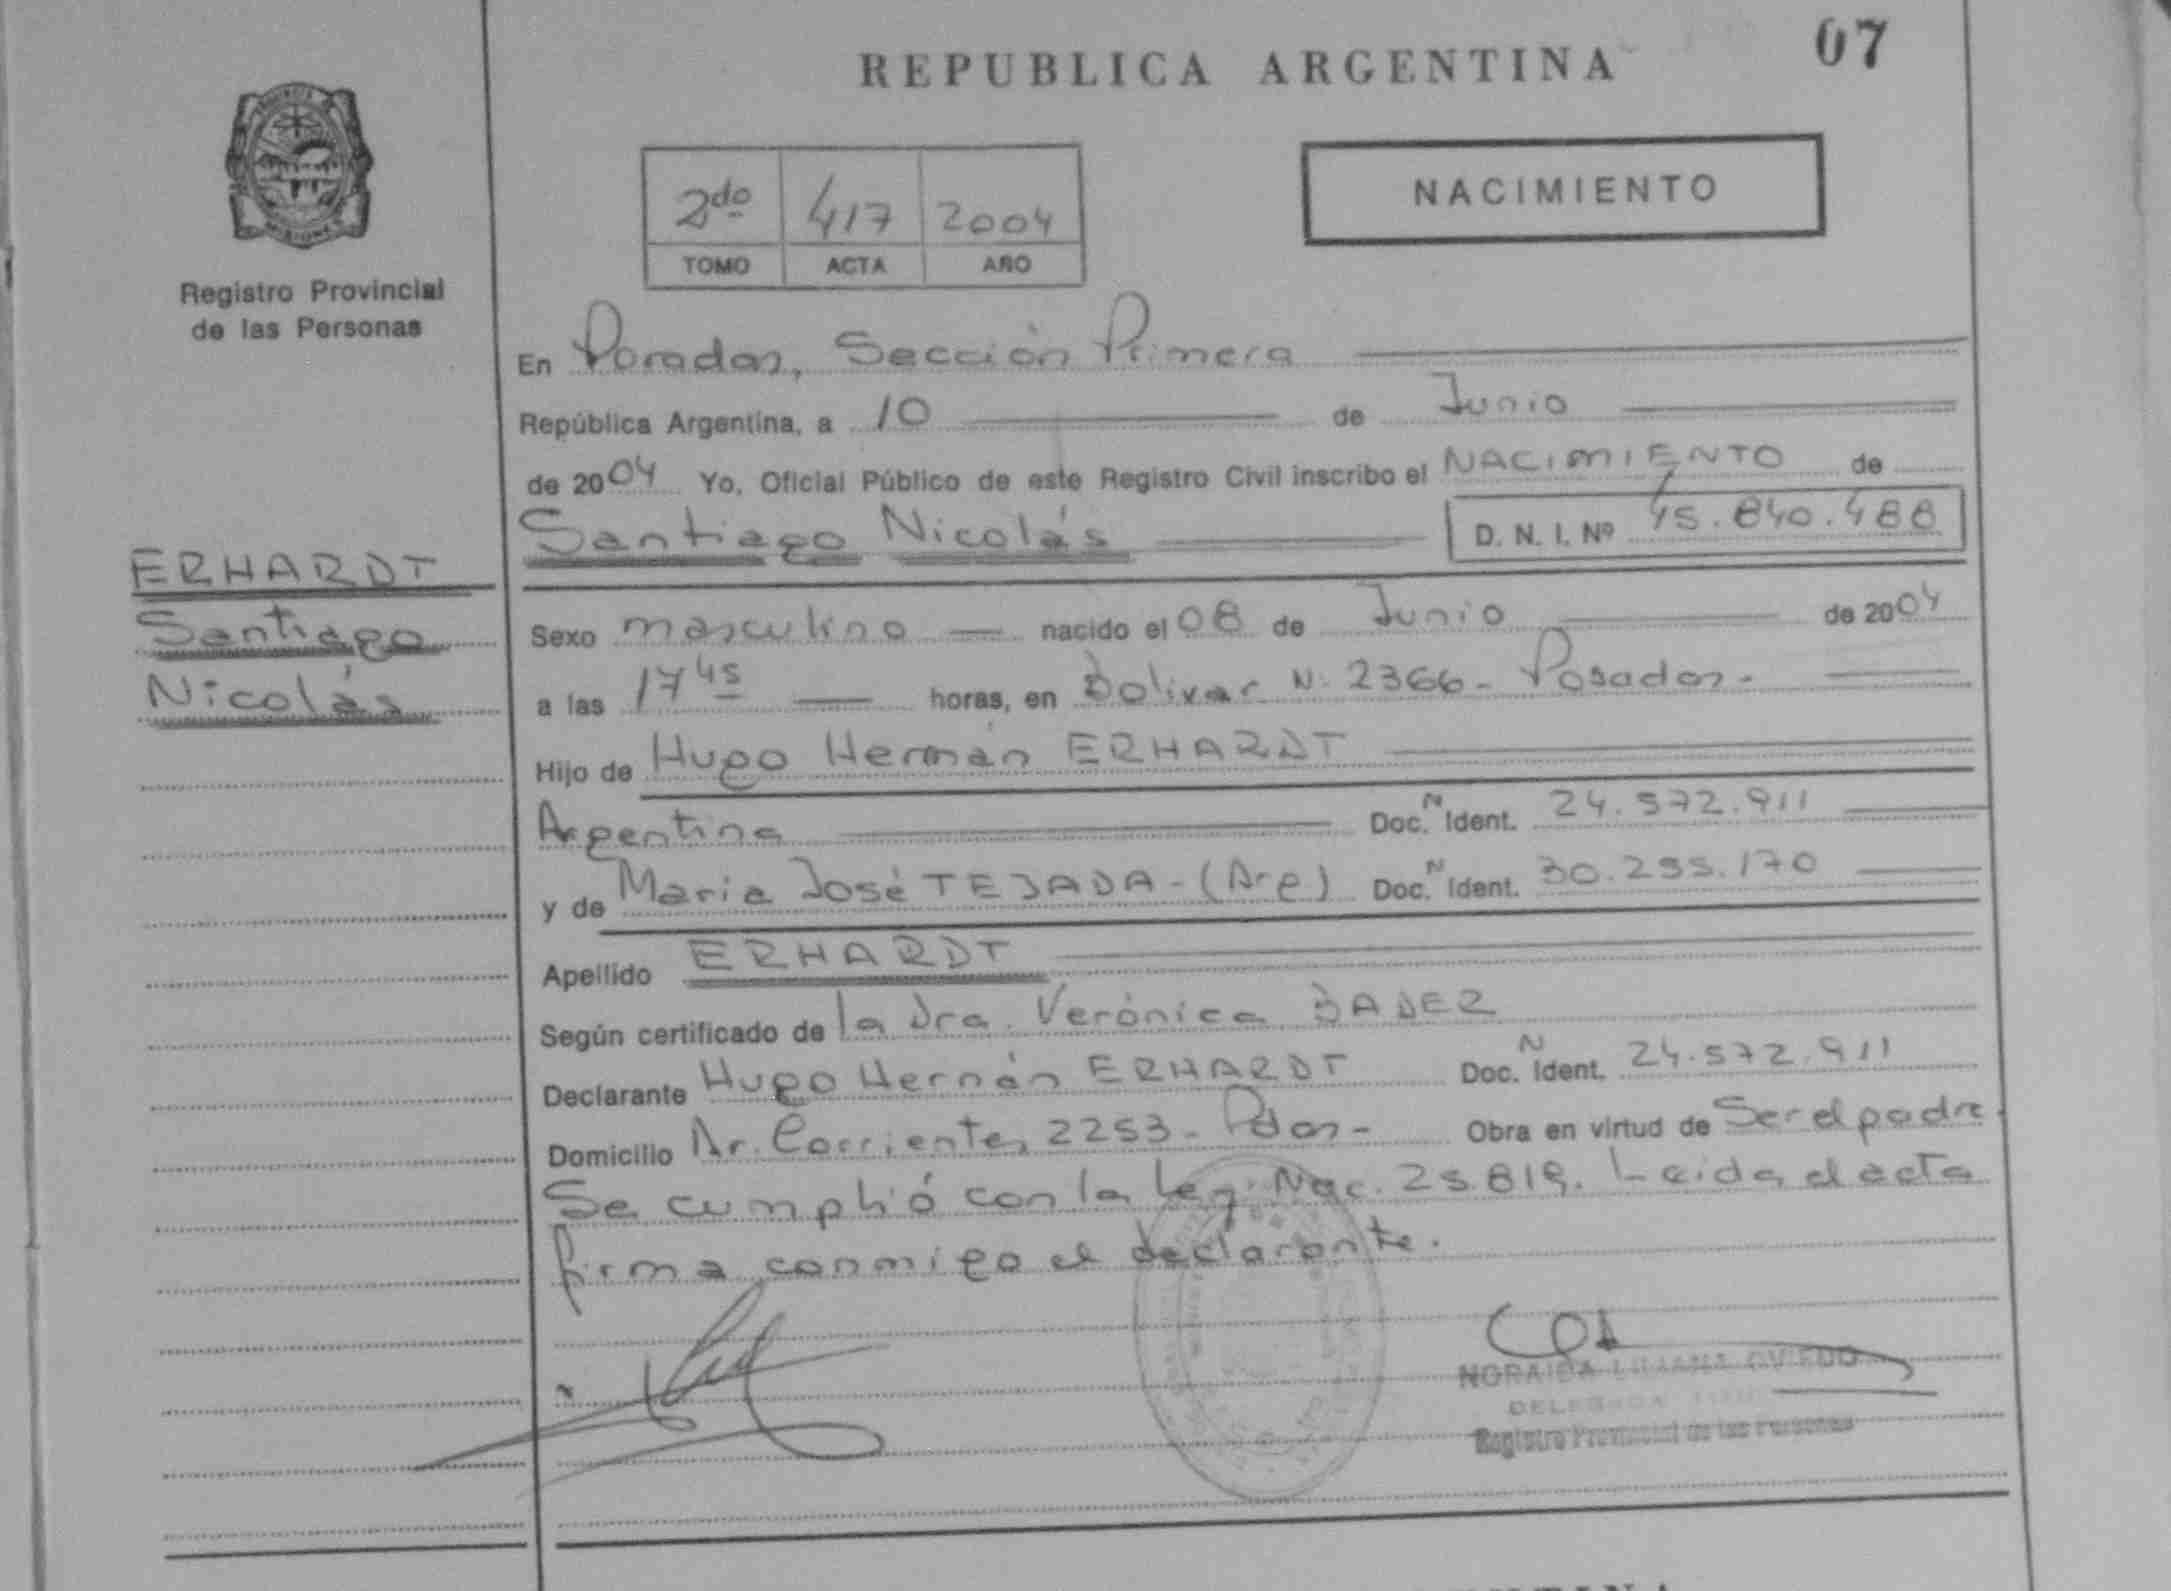 REPUBLICA ARGENTINA
07
PROVINCIA DE
MISIONES
Registro Provincial
de las Personas
2do 417 2004
TOMO ACTA AÑO
NACIMIENTO
En Posadas, Sección Primera
República Argentina, a 10 de Junio
de 2004 Yo, Oficial Público de este Registro Civil inscribo el NACIMIENTO de
Santiago Nicolás D. N. I. Nº 45.840.488
ERHARDT
Santiago
Nicolás
Sexo masculino nacido el 08 de Junio de 2004
a las 17 45 horas, en Bolivar N. 2366 - Posadas -
Hijo de Hugo Hernán ERHARDT
Argentina Doc. N Ident. 24.572.911
y de Maria José TEJADA - (Arg) Doc. N Ident. 30.255.170
Apellido ERHARDT
Según certificado de la Dra. Verónica BADER
Declarante Hugo Hernán ERHARDT Doc. N Ident. 24.572.911
Domicilio Av. Corrientes 2253 - Pdas - Obra en virtud de Ser el padre.
Se cumplió con la Ley Nac. 25.819. Leida el acta
firma conmigo el declarante.
NORAIDA LILIANA OVIEDO
DELEGADA
Registro Provincial de las Personas